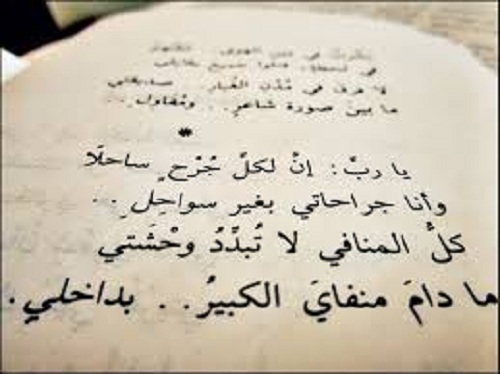 في
لا فرق في مُدُنِ الغُبار . .
ما بينَ صورة شاعرٍ . . ومُقاول . .
*
يا ربُّ : إنّ لكلِّ جُرْحٍ ساحلًا
وأنا جراحاتي بغير سواحِلِ . .
كلُّ المنافي لا تُبدِّدُ وحْشَتي
ما دامَ منفايَ الكبيرُ . . بداخلي .